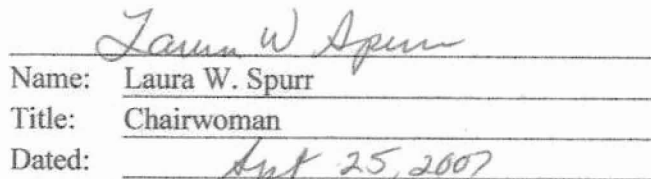 Laura W Spurr
Name: Laura W. Spurr
Title: Chairwoman
Dated: Sept 25, 2007